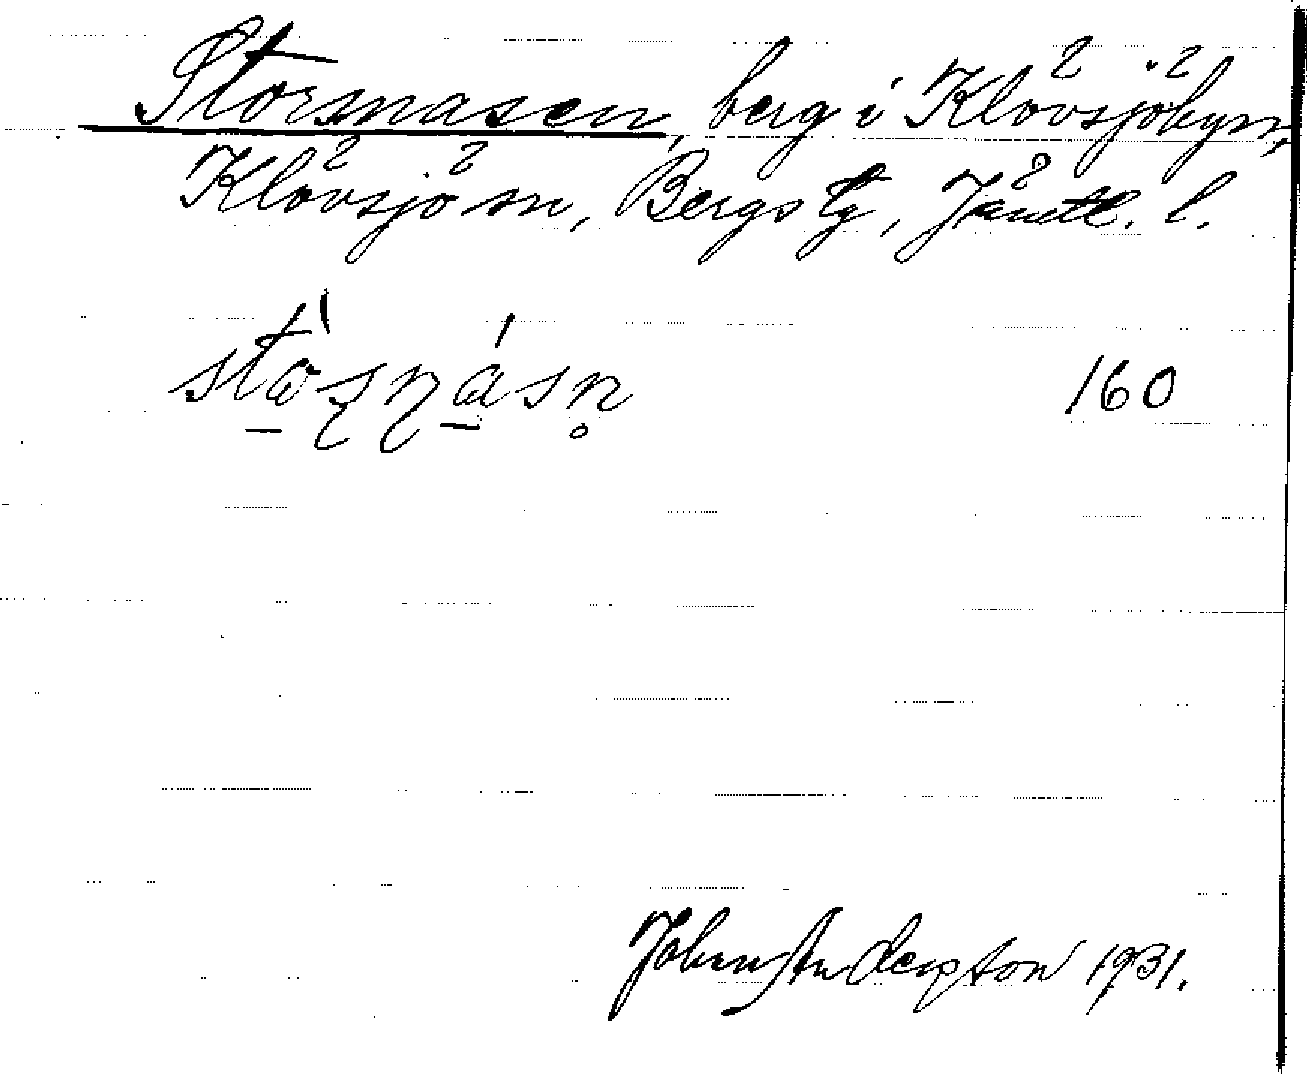 Storsnasen, berg i Klövsjöbyn,
Klövsjö sn, Bergs tg, Jämtl. l.
160
John Anderson 1931.